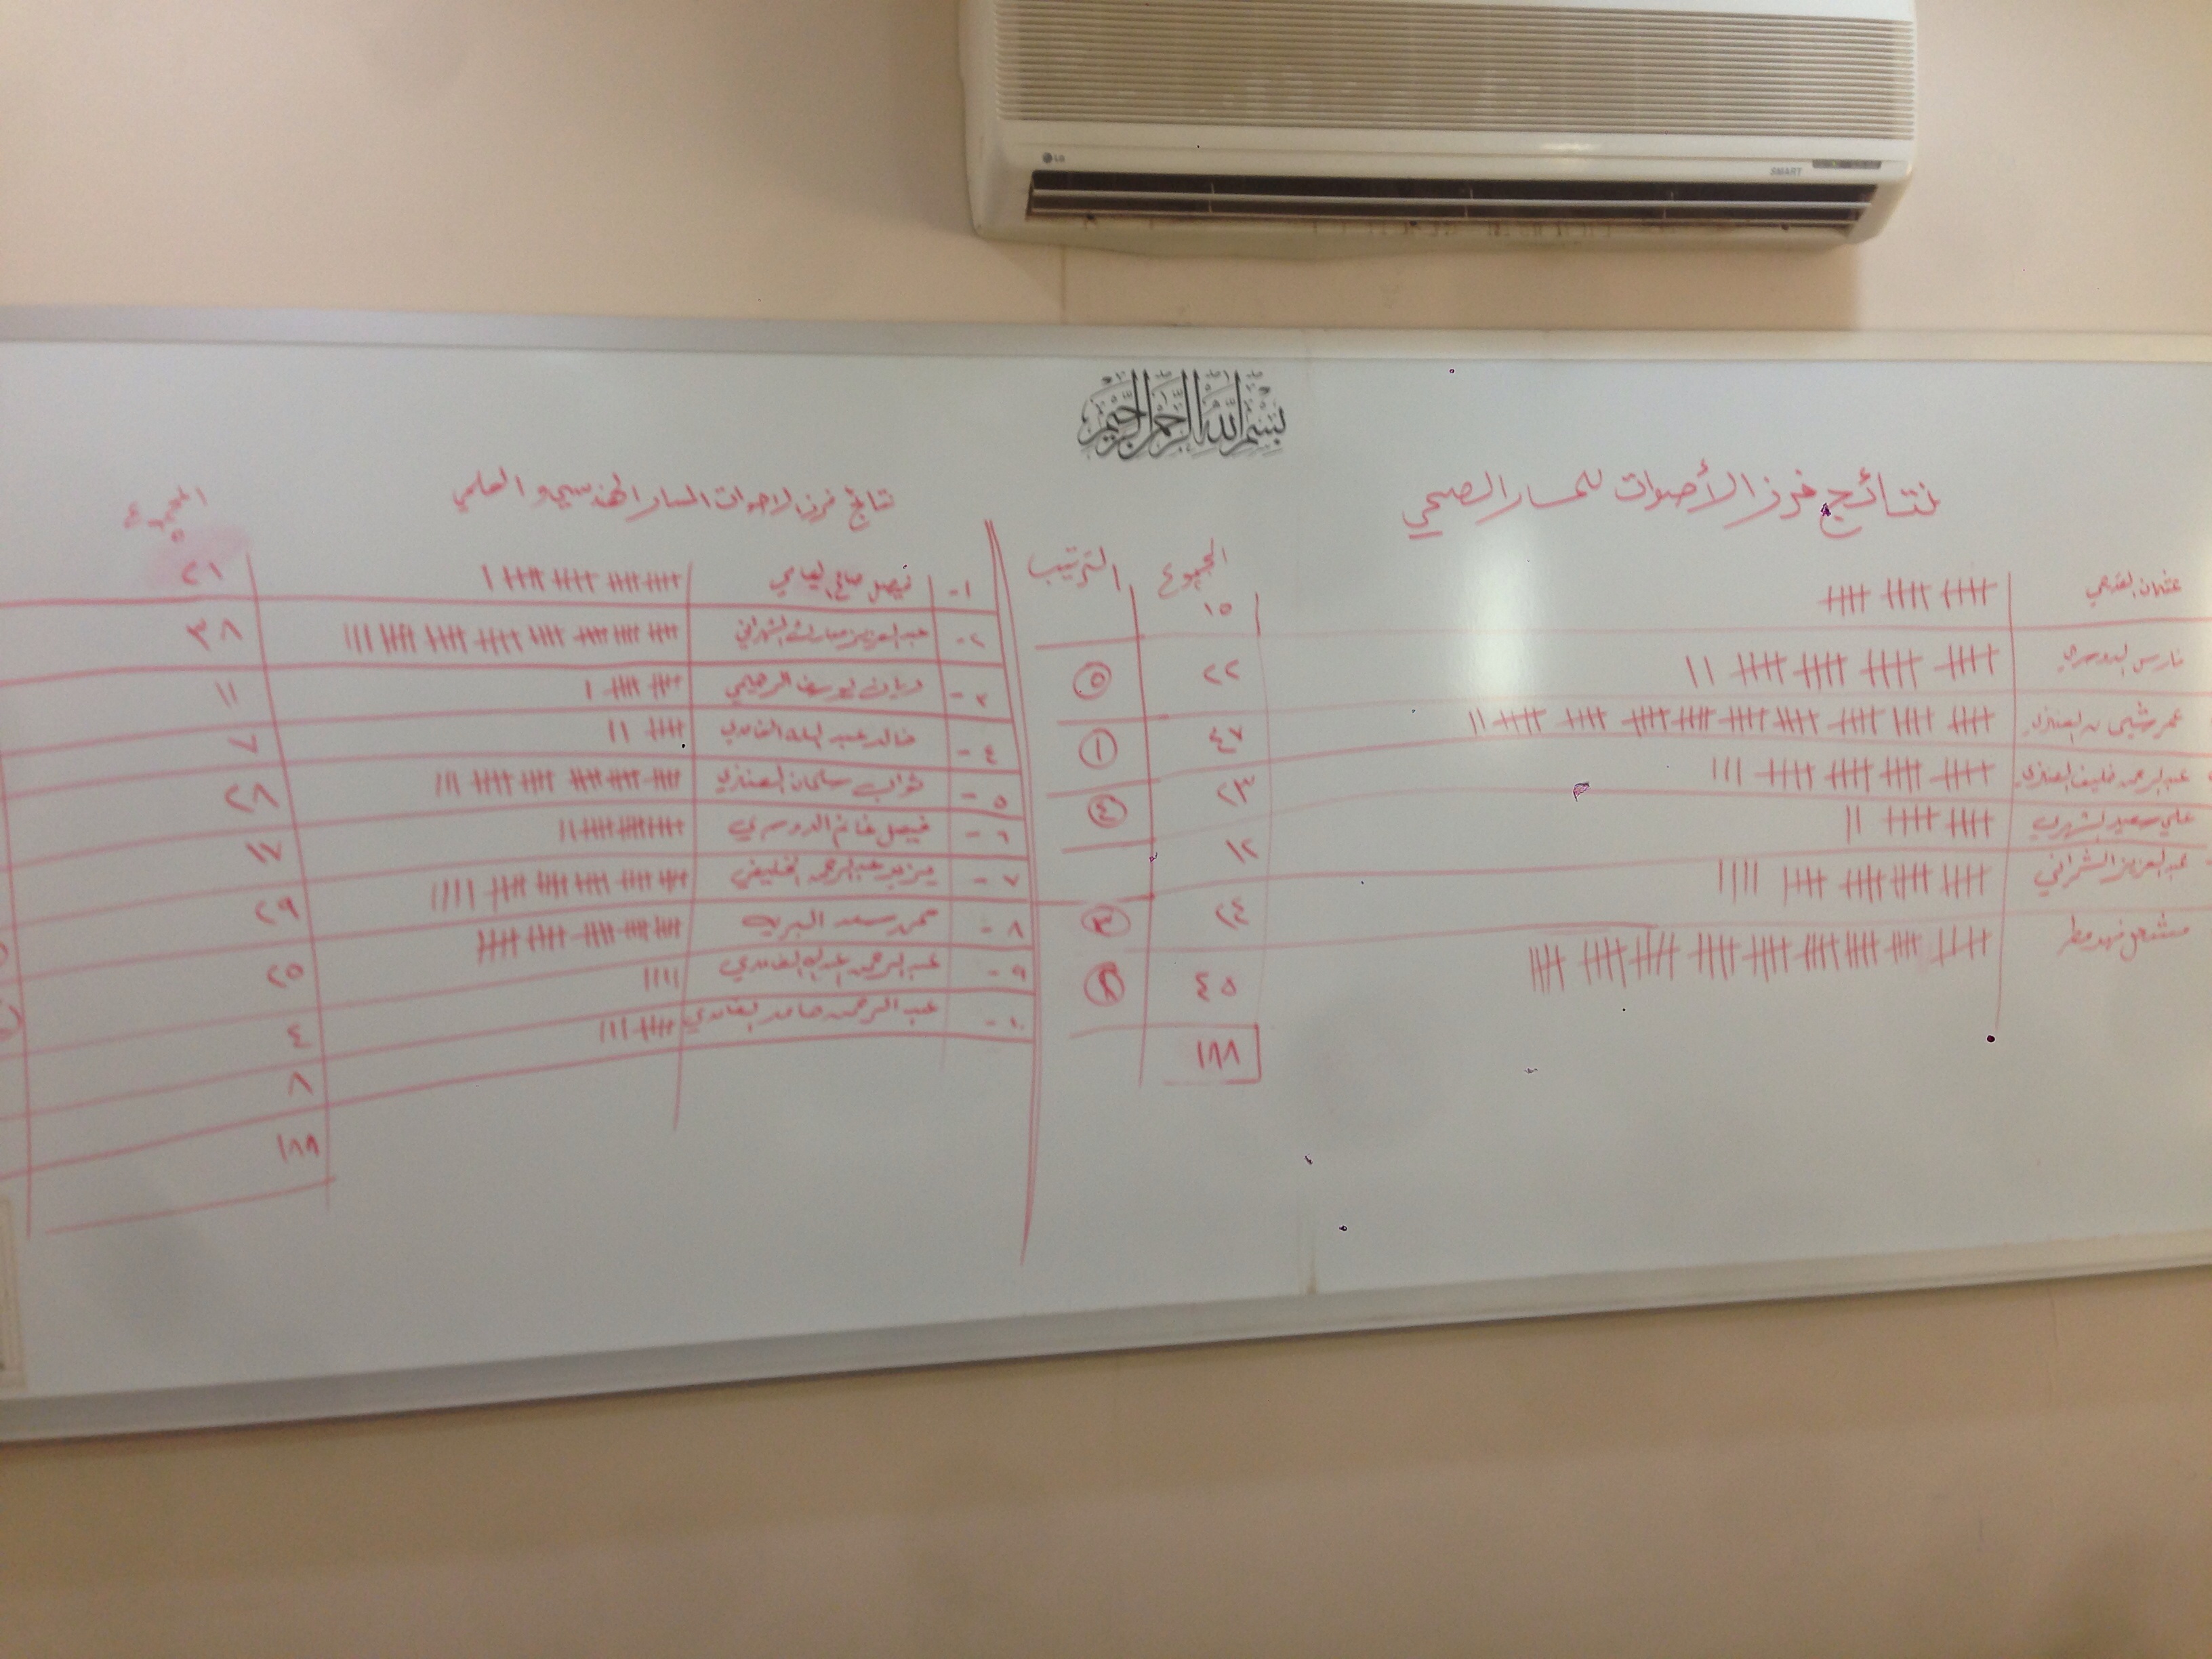 LG
SMART
بسم الله الرحمن الرحيم
نتائج فرز الأصوات للمسار الصحي
المجموع الترتيب
عثمان ١٥
فارس الدوسري ٢٢ ٥
عمر العنزي ٤٧ ١
عبدالرحمن خليف العنزي ٢٣ ٤
علي سعيد الشهري ١٢
عبدالعزيز الشهراني ٢٤ ٣
مشعل فهد مطر ٤٥ ٢
١٨٨
نتائج فرز الاصوات المسار الهندسي و العلمي
المجموع
١- فيصل صالح اليامي ٢١
٢- عبدالعزيز مبارك الشهراني ٣٨
٣- ريان يوسف الرحيمي ١١
٤- خالد عبدالله الغامدي ٧
٥- نواف سلمان العنزي ٢٨
٦- فيصل غانم الدوسري ١٧
٧- يزيد عبدالرحمن الخليفي ٢٩
٨- محمد سعد ٢٥
٩- عبدالرحمن عبدالله الغامدي ٤
١٠- عبدالرحمن حامد الغامدي ٨
١٨٨